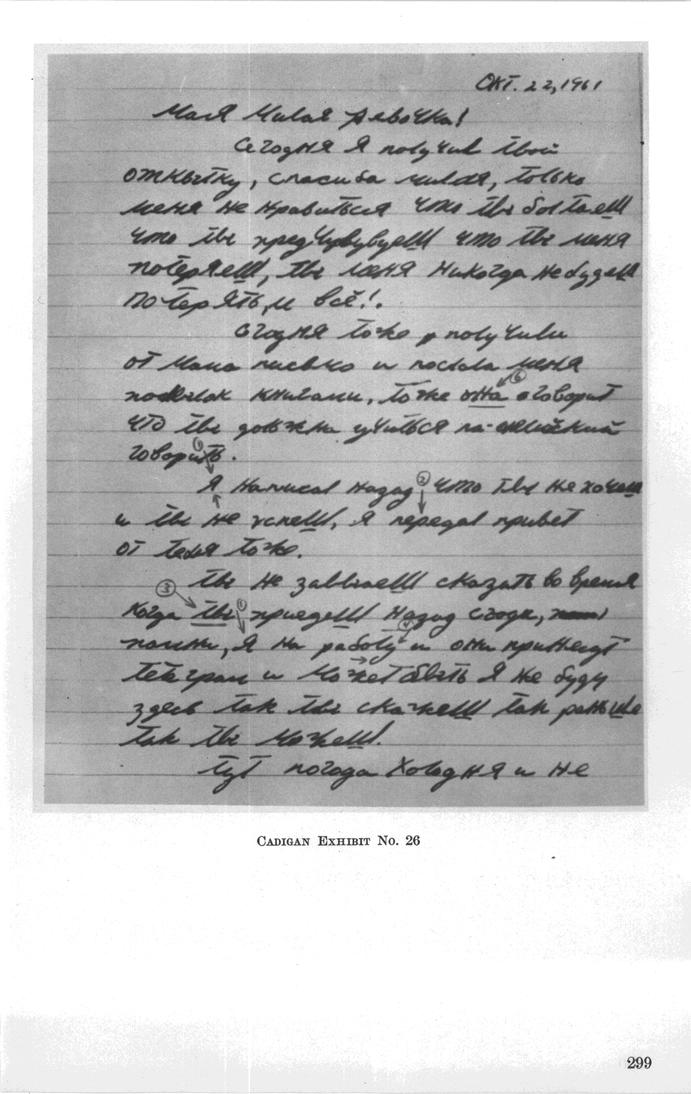 ОКТ. 22, 1961
Мая Милая Девочка!
Сегодня я получил твой
открытку, спасиба милая, только
меня не нравиться что ты болтаеш
что ты предчувувуеш что ты меня
потеряеш, ты меня никогда не будеш
потерять, и всё!.
сгодня тоже получили
от Мама письмо и посlала меня
книгами, тоже она говорит
что ты должна учиться па-английский
говорить.
Я написал назад что ты не хочеш
и ты не успеш, я передал привет
от тебя тоже.
ты не забываеш сказать во время
когда ты приедеш назад сюда,
помни, я на работу и они принегут
телеграм и может быть я не буду
здесь так ты скажеш так раньше
так ты можеш.
тут погода холодная и не
CADIGAN EXHIBIT No. 26
299